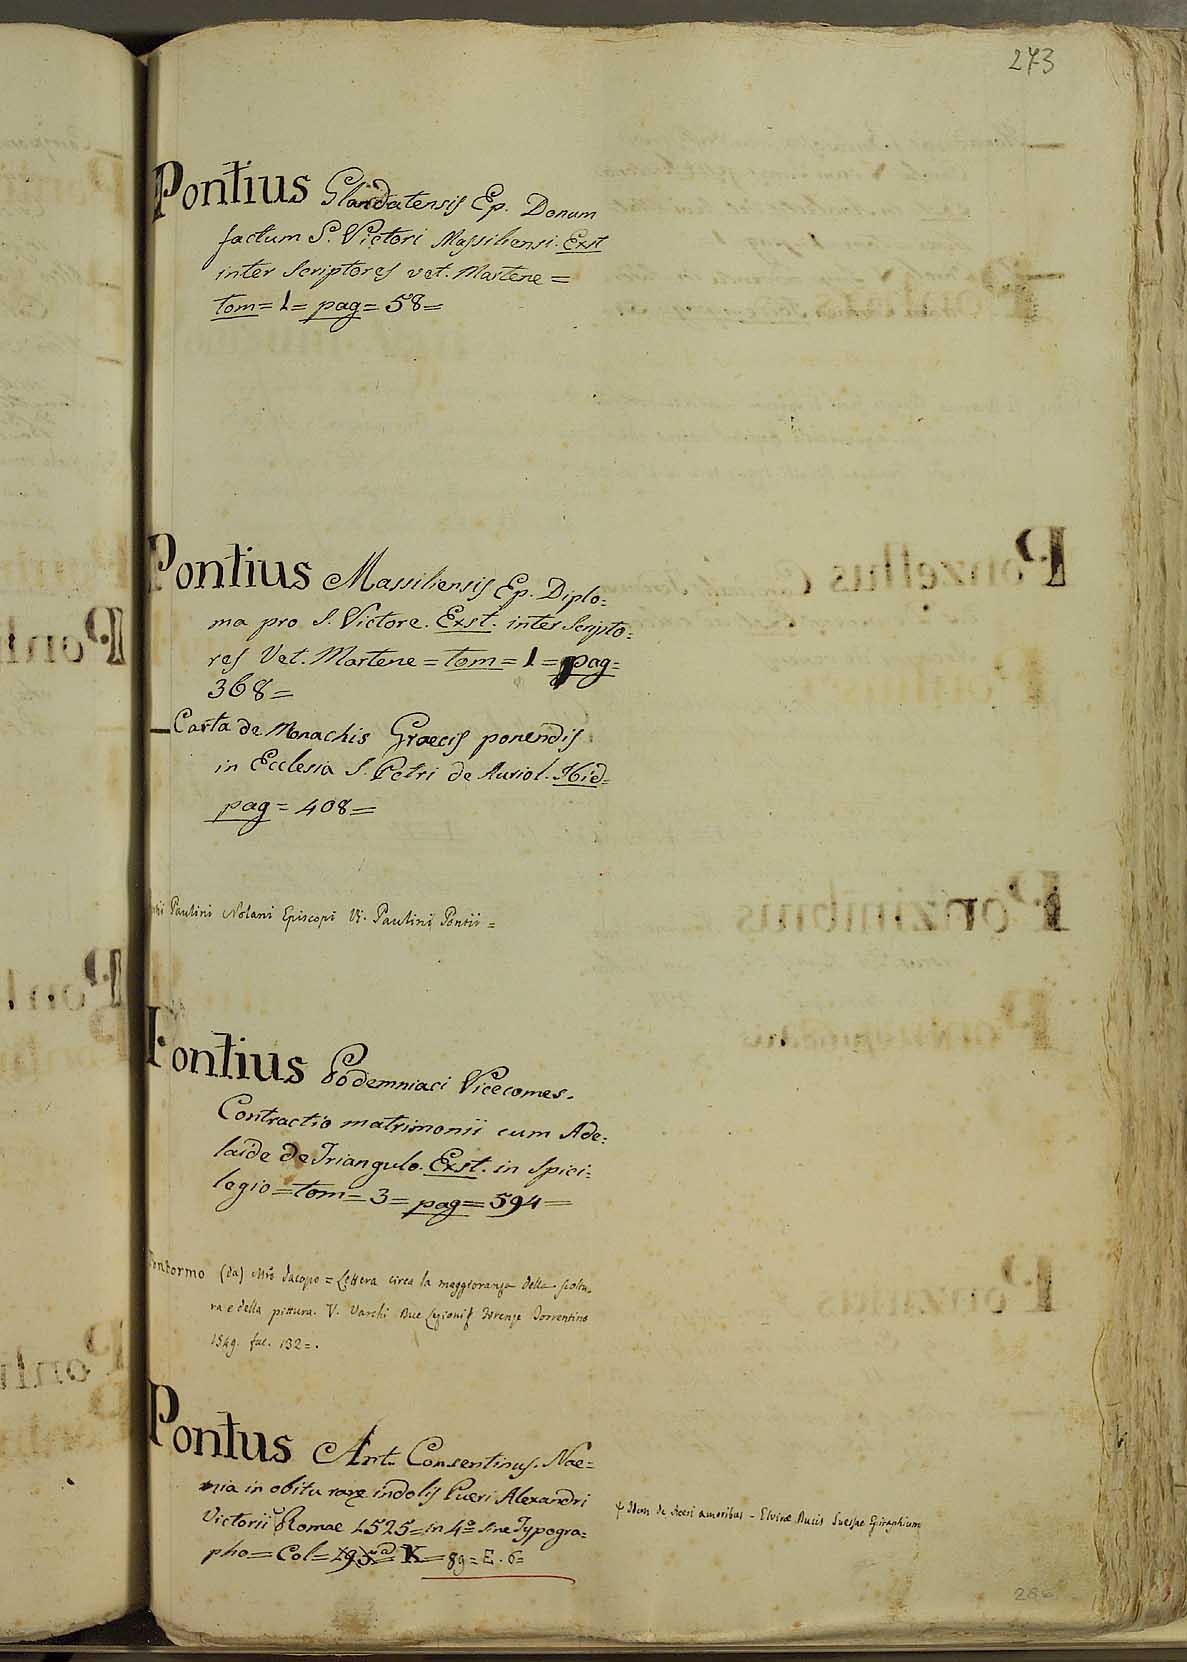 273
Pontius Glandatensis Ep. Donum
factum S. Victori Massiliensi. Exst
inter Scriptores vet. Martene =
tom = 1 = pag = 58 =
Pontius Massiliensis Ep. Diplo=
ma pro S. Victore. Exst. inter Scripto=
res Vet. Martene = tom = 1 = pag =
368 =
— Carta de Monachis Graecis ponendis
in Ecclesia S. Petri de Auriol. Ibid =
pag = 408 =
Pontii Paulini Nolani Episcopi Vi. Paulini Pontii =
Pontius Podemniaci Vicecomes.
Contractio matrimonii cum Ade=
laide de Triangulo. Exst. in Spici=
legio = tom = 3 = pag = 594 =
Pontormo (da) Mro Jacopo = Lettera circa la maggioranza della scoltu
ra e della pittura. V. Varchi Due Lezioni Torrentino
1549. fac. 132 = .
Pontus Ant. Consentinus. Nae=
nia in obitu rarae indolis Pueri Alexandri
Victorii Romae 1525 = in 4o sine Typogra=
pho = Col = K = 89 = E. 6 =
Item de amoribus - Elvirae Ducis Suessae
286